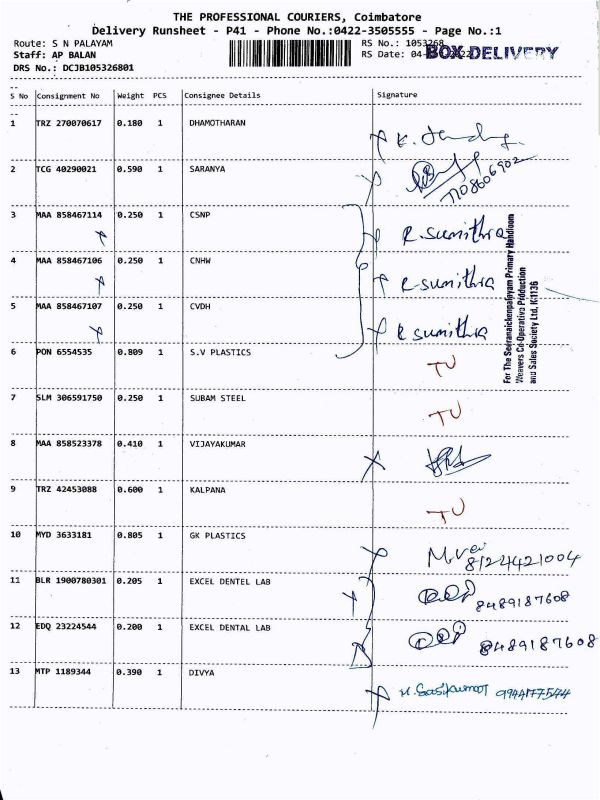 THE PROFESSIONAL COURIERS, Coimbatore
Delivery Runsheet - P41 - Phone No.:0422-3505555 - Page No.:1
Route: S N PALAYAM
Staff: AP BALAN
DRS No.: DCJB105326801
RS No.: 1053268
RS Date: 04-
BOX DELIVERY
S No Consignment No Weight PCS Consignee Details Signature
1 TRZ 270070617 0.180 1 DHAMOTHARAN
2 TCG 40290021 0.590 1 SARANYA
3 MAA 858467114 0.250 1 CSNP R. Sumithra
4 MAA 858467106 0.250 1 CNHW R-sumithra
5 MAA 858467107 0.250 1 CVDH R sumithra
For The Seeranaickenpalayam Primary Handloom
Weavers Co-Operative Production
and Sales Society Ltd, K1136
6 PON 6554535 0.809 1 S.V PLASTICS TU
7 SLM 306591750 0.250 1 SUBAM STEEL TU
8 MAA 858523378 0.410 1 VIJAYAKUMAR
9 TRZ 42453088 0.600 1 KALPANA TU
10 MYD 3633181 0.805 1 GK PLASTICS 8124421004
11 BLR 1900780301 0.205 1 EXCEL DENTEL LAB 8489187608
12 EDQ 23224544 0.200 1 EXCEL DENTAL LAB 8489187608
13 MTP 1189344 0.390 1 DIVYA M. Sasikumar 9944177544